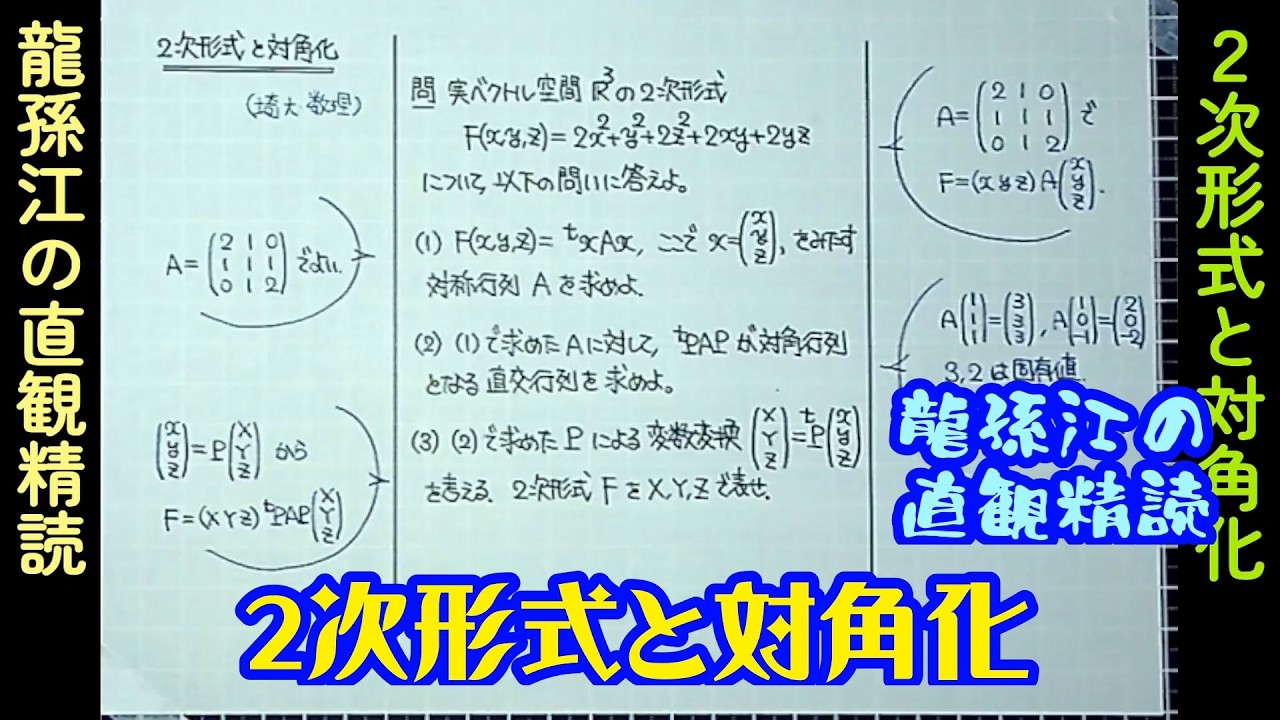 龍孫江の直観精読
2次形式と対角化
(埼大数理)
A=(2 1 0
1 1 1
0 1 2)でよい.
(x
y
z)=P(X
Y
Z) から
F=(X Y Z) ᵗPAP(X
Y
Z)
問 実ベクトル空間 ℝ³の2次形式
F(x,y,z)=2x²+y²+2z²+2xy+2yz
について, 以下の問いに答えよ。
(1) F(x,y,z)= ᵗxAx, ここで x=(x
y
z), をみたす
対称行列 A を求めよ.
(2) (1)で求めたAに対して, ᵗPAP が対角行列
となる直交行列を求めよ。
(3) (2)で求めた P による変数変換 (X
Y
Z)=ᵗP(x
y
z)
を考える. 2次形式 F をX,Y,Zで表せ.
A=(2 1 0
1 1 1
0 1 2)で
F=(x y z)A(x
y
z).
A(1
1
1)=(3
3
3), A(1
0
-1)=(2
0
-2)
3,2は固有値.
龍孫江の
直観精読
2次形式と対角化
2次形式と対角化